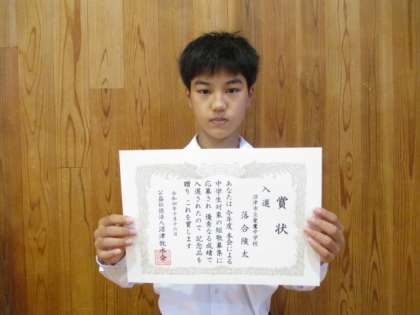 賞状
入選
沼津市立愛鷹中学校
落合陽太
あなたは今年度本会による
中学生対象の短歌募集に
応募され優秀なる成績で
入選されたので記念品を
贈りこれを賞します
令和四年十月十六日
公益社団法人沼津牧水会